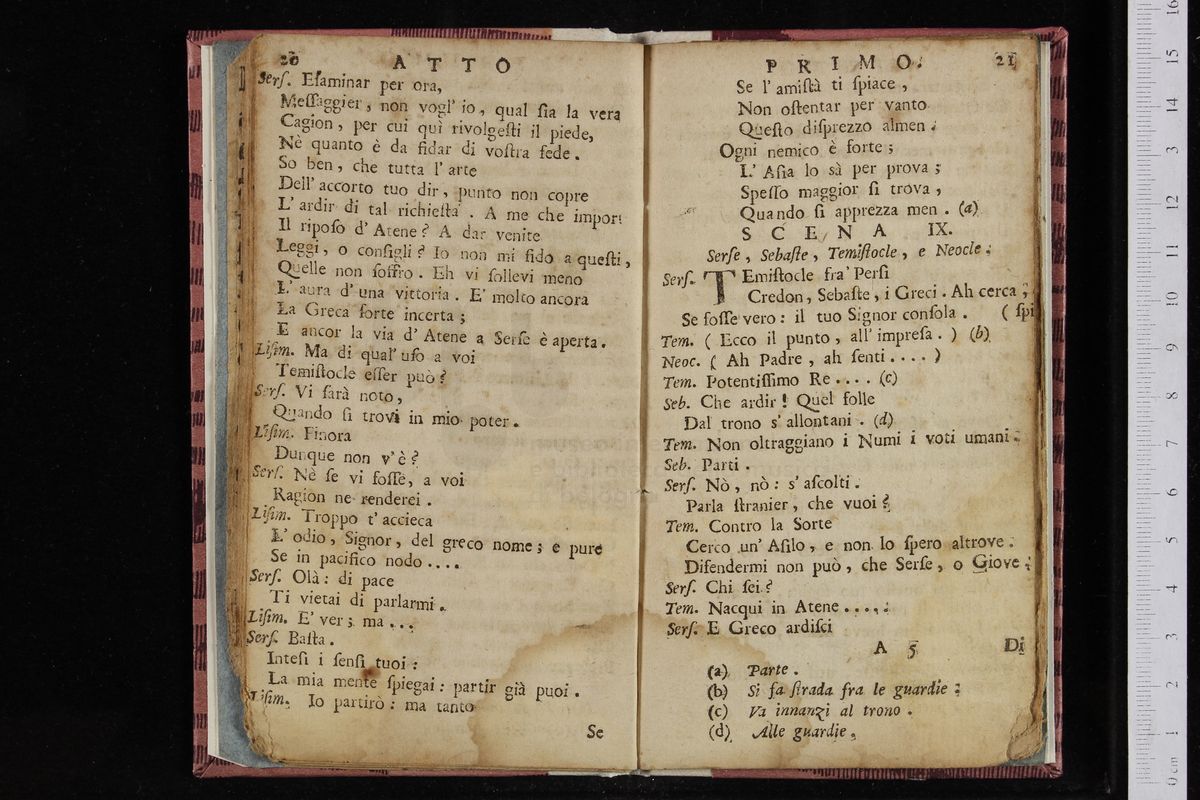 20 ATTO
Serſ. Eſaminar per ora,
Meſſaggier, non vogl' io, qual ſia la vera
Cagion, per cui quì rivolgeſti il piede,
Nè quanto è da fidar di voſtra fede.
So ben, che tutta l'arte
Dell' accorto tuo dir, punto non copre
L'ardir di tal richieſta. A me che import
Il ripoſo d'Atene? A dar venite
Leggi, o conſigli? Io non mi fido a queſti,
Quelle non ſoffro. Eh vi ſollevi meno
L'aura d'una vittoria. E' molto ancora
La Greca ſorte incerta;
E ancor la via d'Atene a Serſe è aperta.
Liſim. Ma di qual' uſo a voi
Temiſtocle eſſer può?
Serſ. Vi ſarà noto,
Quando ſi trovi in mio poter.
Liſim. Finora
Dunque non v'è?
Serſ. Nè ſe vi foſſe, a voi
Ragion ne renderei.
Liſim. Troppo t'accieca
L'odio, Signor, del greco nome; e pure
Se in pacifico nodo....
Serſ. Olà: di pace
Ti vietai di parlarmi.
Liſim. E' ver; ma...
Serſ. Baſta.
Inteſi i ſenſi tuoi:
La mia mente ſpiegai: partir già puoi.
Liſim. Io partirò: ma tanto
Se
PRIMO. 21
Se l'amiſtà ti ſpiace,
Non oſtentar per vanto
Queſto diſprezzo almen.
Ogni nemico è forte;
L'Aſia lo sà per prova;
Speſſo maggior ſi trova,
Quando ſi apprezza men. (a)
SCENA IX.
Serſe, Sebaſte, Temiſtocle, e Neocle.
Serſ. TEmiſtocle fra' Perſi
Credon, Sebaſte, i Greci. Ah cerca,
Se foſſe vero: il tuo Signor conſola. (ſpi
Tem. (Ecco il punto, all' impreſa.) (b)
Neoc. (Ah Padre, ah ſenti....)
Tem. Potentiſſimo Re.... (c)
Seb. Che ardir! Quel folle
Dal trono s'allontani. (d)
Tem. Non oltraggiano i Numi i voti umani.
Seb. Parti.
Serſ. Nò, nò: s'aſcolti.
Parla ſtranier, che vuoi?
Tem. Contro la Sorte
Cerco un' Aſilo, e non lo ſpero altrove.
Difendermi non può, che Serſe, o Giove.
Serſ. Chi ſei?
Tem. Nacqui in Atene....
Serſ. E Greco ardiſci
A 5 Di
(a) Parte.
(b) Si fa ſtrada fra le guardie.
(c) Va innanzi al trono.
(d) Alle guardie.